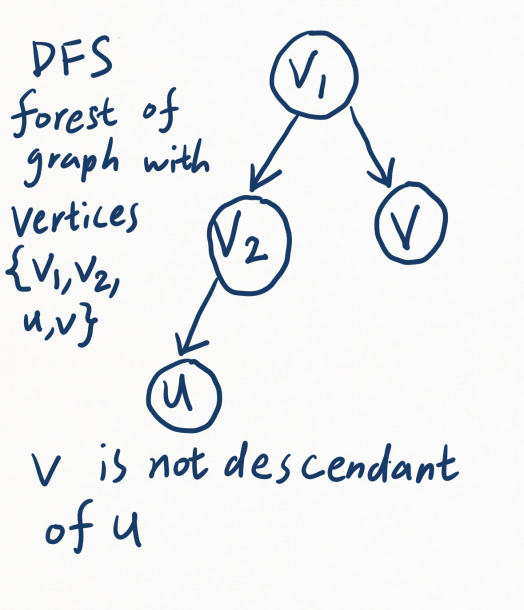 DFS
forest of
graph with
vertices
{V₁,V₂,
u,v}
V₁
V₂
V
u
V is not descendant
of u